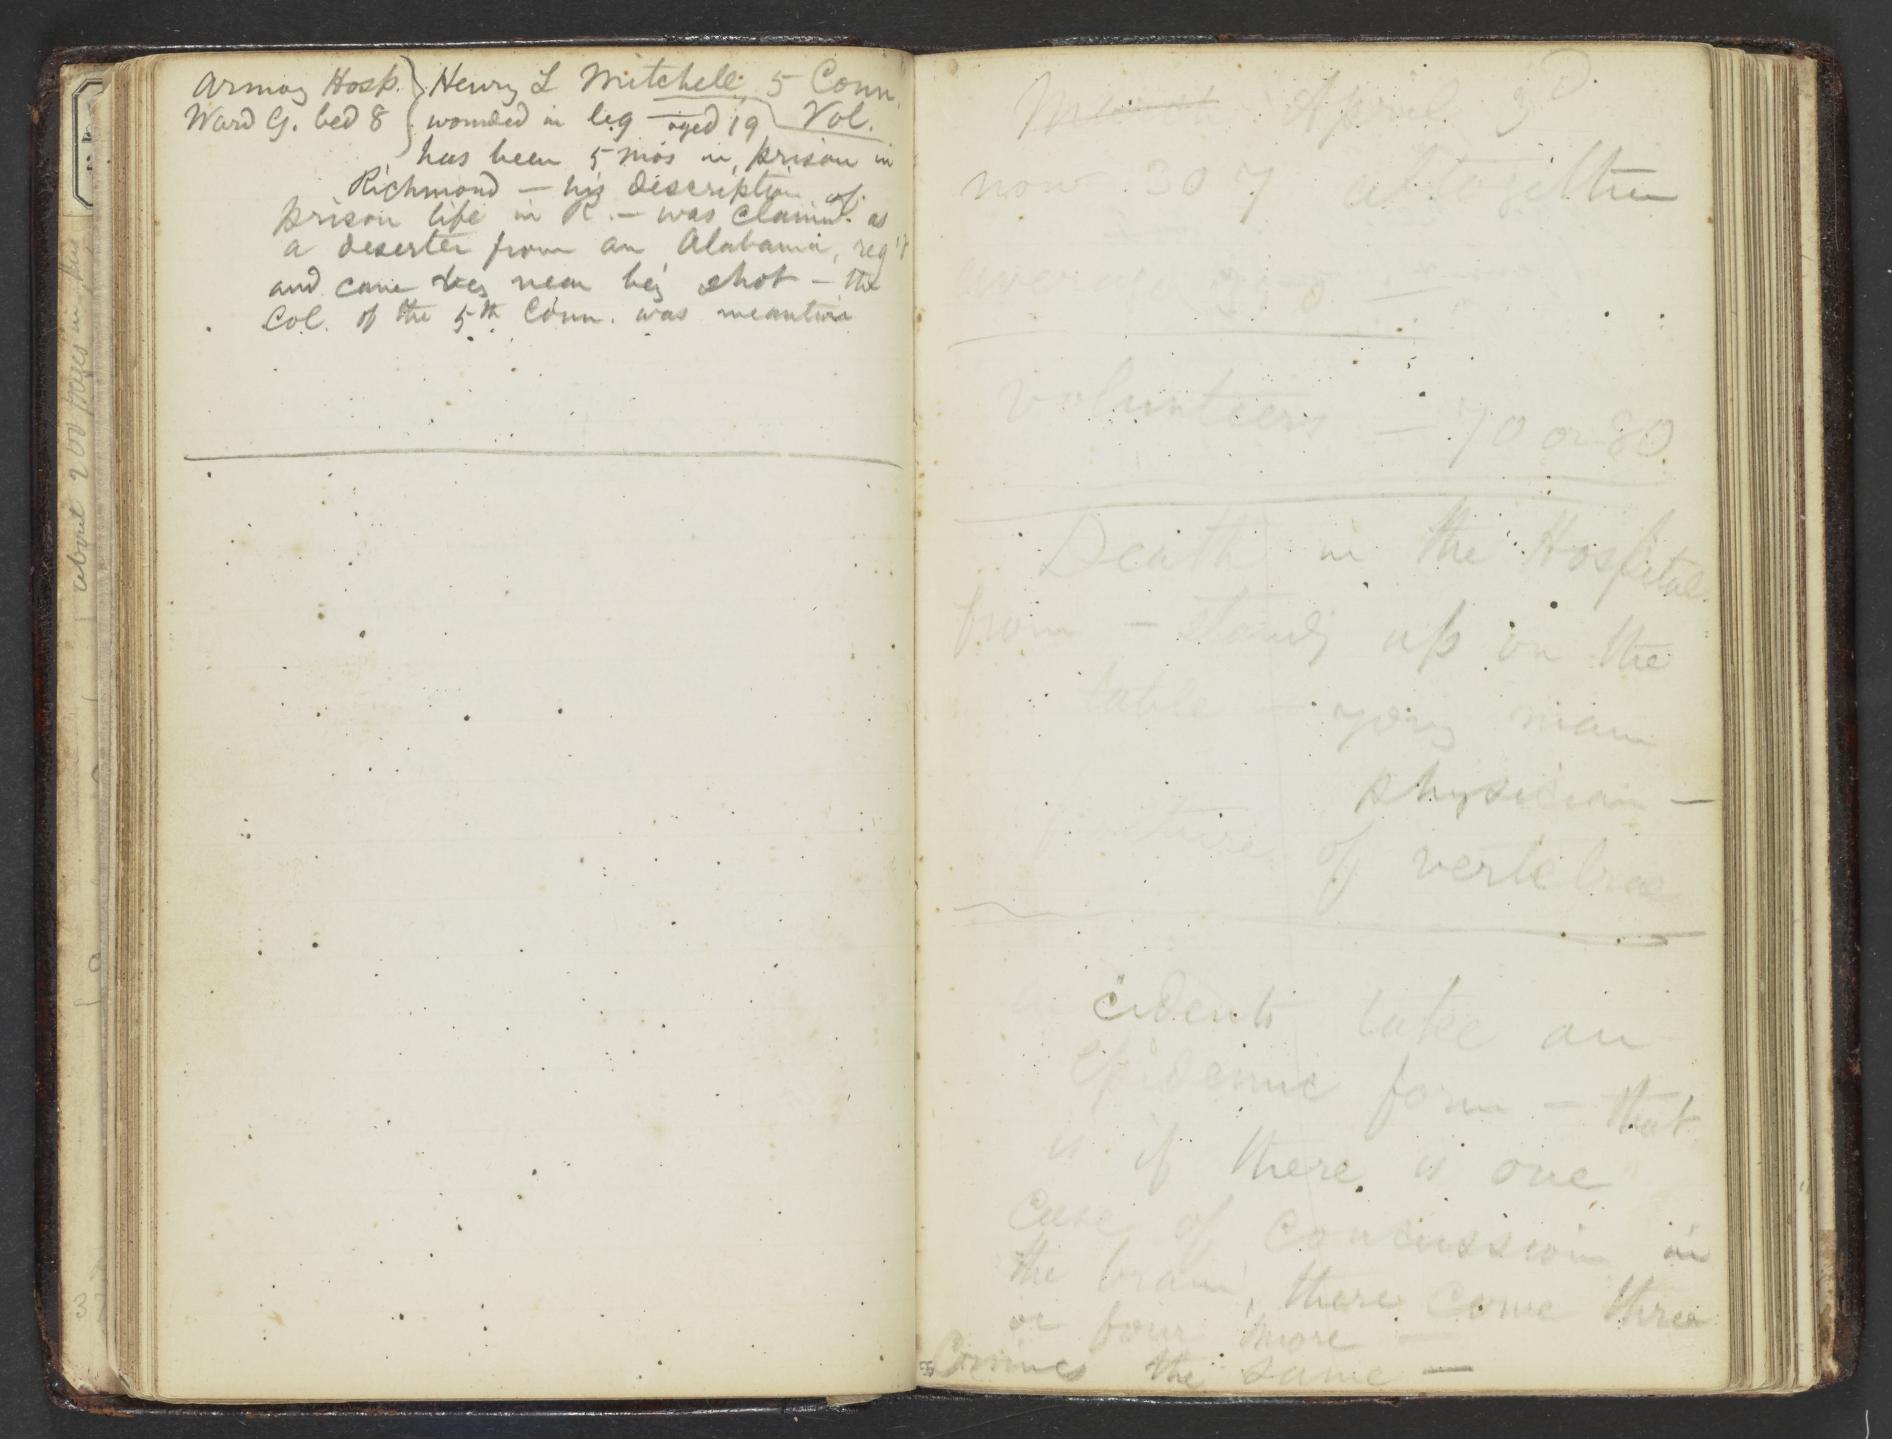 Armory Hosp. Henry L Mitchell, 5 Conn.
Ward G. bed 8 wounded in leg — aged 19 Vol.
has been 5 mos in prison in
Richmond — his description of
prison life in R. — was claimed as
a deserter from an Alabama, reg't
and came very near be'g shot — the
Col. of the 5th Conn. was meantime
March April 3d
now 307 altogether
average 350
volunteers — 70 or 80
Death in the Hospital
from — stand'g up on the
table — young man
physician —
fracture of vertebrae
accidents take an
epidemic form — that
is if there is one
case of concussion in
the brain, there come three
or four more —
Crimes the same —
about 200 pages in
37